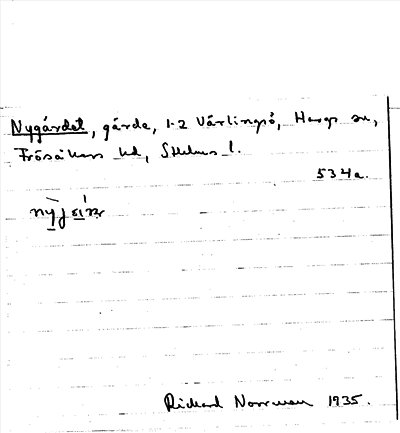 Nygärdet, gärde, 1-2 Värlingsö, Hargs sn,
Frösåkers hd, Sthlms l.
534a.
Rickard Norrman 1935.